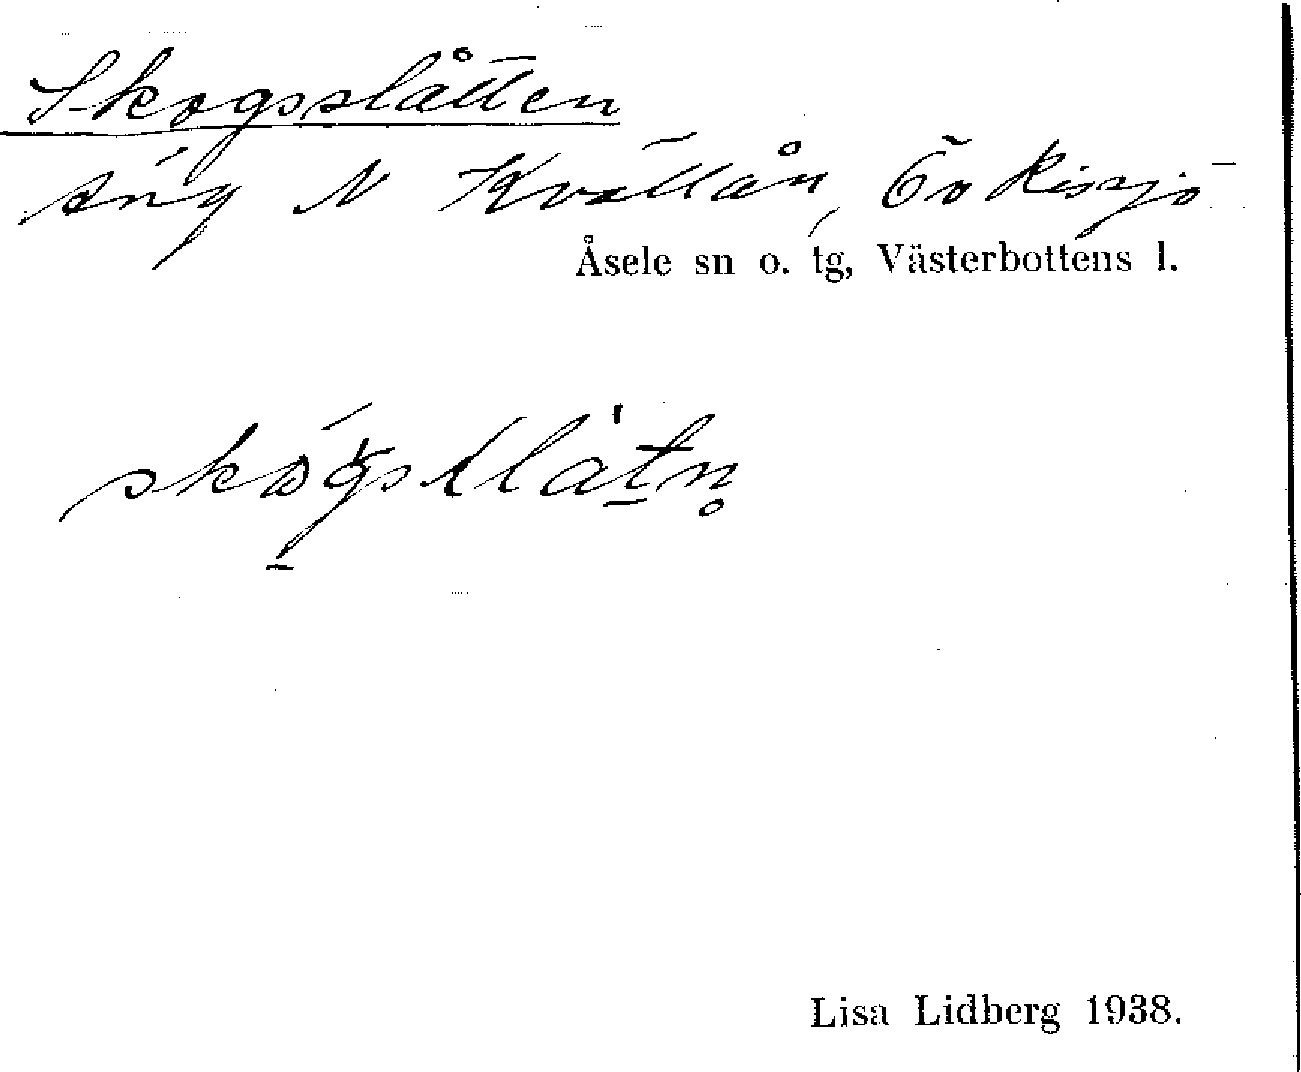 Skogsslåtten
äng N Kvällån,
Åsele sn o. tg, Västerbottens l.
Lisa Lidberg 1938.